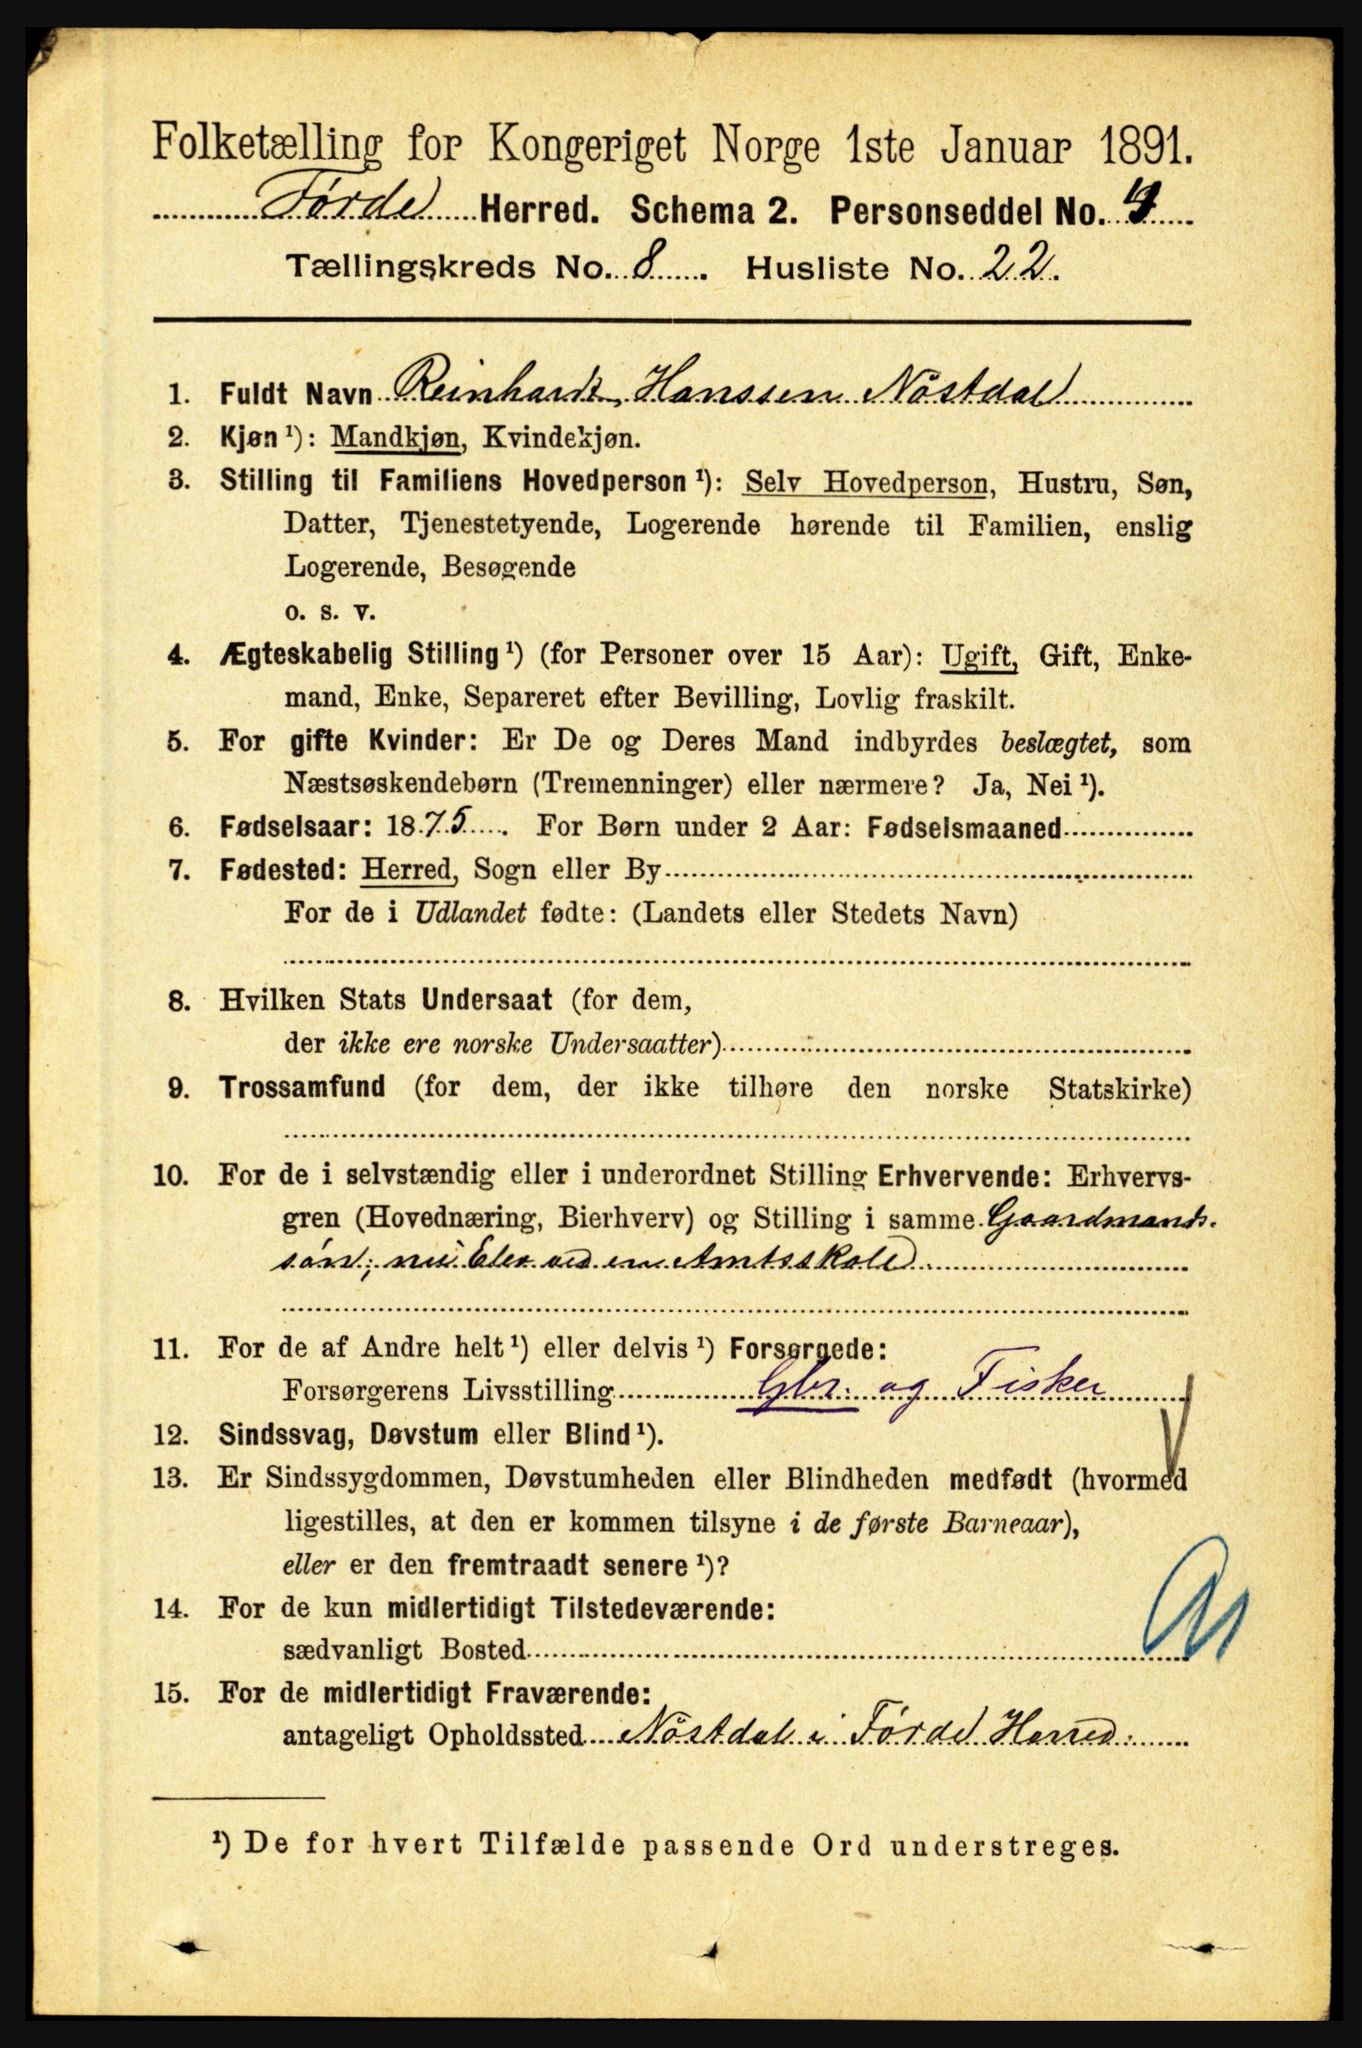 Folketælling for Kongeriget Norge 1ste Januar 1891.
Førde Herred. Schema 2. Personseddel No. 4
Tællingskreds No. 8. Husliste No. 22.
1. Fuldt Navn Reinhardt Hanssen Nöstdal
2. Kjøn ¹): Mandkjøn, Kvindekjøn.
3. Stilling til Familiens Hovedperson ¹): Selv Hovedperson, Hustru, Søn,
Datter, Tjenestetyende, Logerende hørende til Familien, enslig
Logerende, Besøgende
o. s. v.
4. Ægteskabelig Stilling ¹) (for Personer over 15 Aar): Ugift, Gift, Enke-
mand, Enke, Separeret efter Bevilling, Lovlig fraskilt.
5. For gifte Kvinder: Er De og Deres Mand indbyrdes beslægtet, som
Næstsøskendebørn (Tremenninger) eller nærmere? Ja, Nei ¹).
6. Fødselsaar: 1875. For Børn under 2 Aar: Fødselsmaaned
7. Fødested: Herred, Sogn eller By
For de i Udlandet fødte: (Landets eller Stedets Navn)
8. Hvilken Stats Undersaat (for dem,
der ikke ere norske Undersaatter)
9. Trossamfund (for dem, der ikke tilhøre den norske Statskirke)
10. For de i selvstændig eller i underordnet Stilling Erhvervende: Erhvervs-
gren (Hovednæring, Bierhverv) og Stilling i samme Gaardmands-
sön; nu Elev ved en Amtsskole.
11. For de af Andre helt ¹) eller delvis ¹) Forsørgede:
Forsørgerens Livsstilling Gbr. og Fisker
12. Sindssvag, Døvstum eller Blind ¹).
13. Er Sindssygdommen, Døvstumheden eller Blindheden medfødt (hvormed
ligestilles, at den er kommen tilsyne i de første Barneaar),
eller er den fremtraadt senere ¹)?
14. For de kun midlertidigt Tilstedeværende:
sædvanligt Bosted
15. For de midlertidigt Fraværende:
antageligt Opholdssted Nöstdal i Førde Herred.
¹) De for hvert Tilfælde passende Ord understreges.